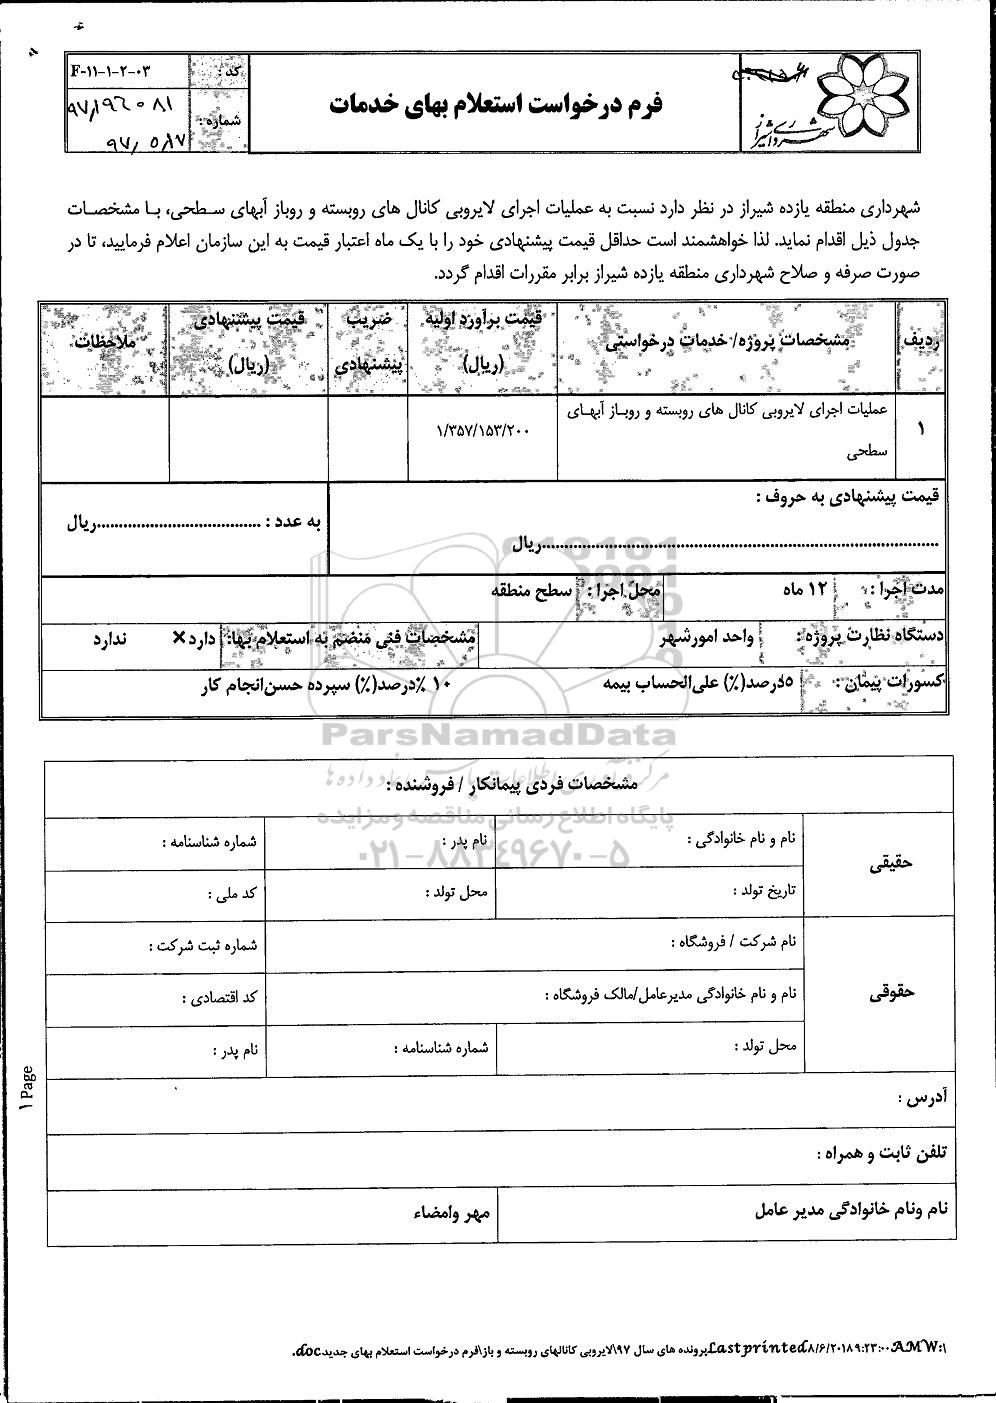 شهرداری شیراز
فرم درخواست استعلام بهای خدمات
کد :
F-۱۱-۱-۲-۰۳
شماره :
۹۷/۵۸۷
شهرداری منطقه یازده شیراز در نظر دارد نسبت به عملیات اجرای لایروبی کانال های روبسته و روباز آبهای سطحی، با مشخصات
جدول ذیل اقدام نماید. لذا خواهشمند است حداقل قیمت پیشنهادی خود را با یک ماه اعتبار قیمت به این سازمان اعلام فرمایید، تا در
صورت صرفه و صلاح شهرداری منطقه یازده شیراز برابر مقررات اقدام گردد.
ردیف
مشخصات پروژه/ خدمات درخواستی
قیمت برآورد اولیه
(ریال)
ضریب
پیشنهادی
قیمت پیشنهادی
(ریال)
ملاحظات
۱
عملیات اجرای لایروبی کانال های روبسته و روباز آبهای
سطحی
۱/۳۵۷/۱۵۳/۲۰۰
قیمت پیشنهادی به حروف :
........................................................................................ریال
به عدد : .....................................ریال
مدت اجرا : ۱۲ ماه
محل اجرا : سطح منطقه
دستگاه نظارت پروژه : واحد امورشهر
مشخصات فنی منضم به استعلام بها: دارد× ندارد
کسورات پیمان : ۵درصد(٪) علی‌الحساب بیمه ۱۰ ٪درصد(٪) سپرده حسن‌انجام کار
ParsNamadData
مرکز فرآوری اطلاعات پارس نماد داده ها
پایگاه اطلاع رسانی مناقصه و مزایده
۰۲۱-۸۸۳۴۹۶۷۰-۵
مشخصات فردی پیمانکار / فروشنده :
حقیقی
نام و نام خانوادگی :
نام پدر :
شماره شناسنامه :
تاریخ تولد :
محل تولد :
کد ملی :
حقوقی
نام شرکت / فروشگاه :
شماره ثبت شرکت :
نام و نام خانوادگی مدیرعامل/مالک فروشگاه :
کد اقتصادی :
محل تولد :
شماره شناسنامه :
نام پدر :
آدرس :
تلفن ثابت و همراه :
نام ونام خانوادگی مدیر عامل
مهر وامضاء
۱ Page
W:\پرونده های سال ۹۷\لایروبی کانالهای روبسته و باز\فرم درخواست استعلام بهای جدید.doc Last printed ۸/۶/۲۰۱۸ ۹:۲۳:۰۰ AM